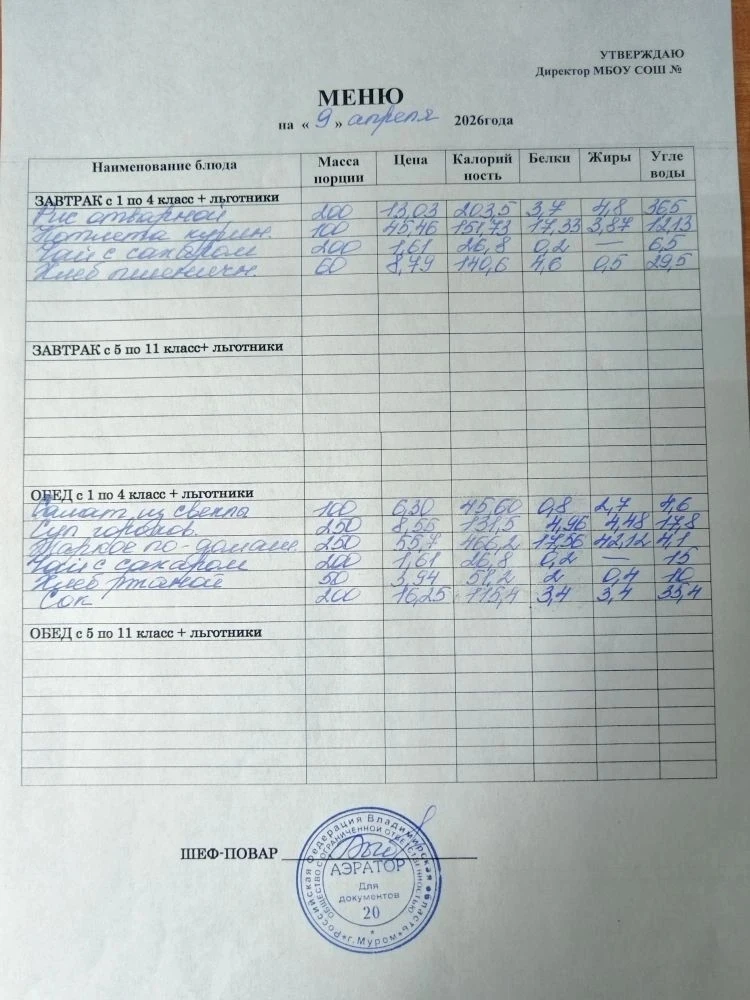 УТВЕРЖДАЮ
Директор МБОУ СОШ №
МЕНЮ
на « 9 » апреля 2026года
Наименование блюда Масса порции Цена Калорий ность Белки Жиры Угле воды
ЗАВТРАК с 1 по 4 класс + льготники
Рис отварной 200 13,03 203,5 3,7 4,8 36,5
Котлета курин. 100 45,46 151,73 17,33 3,87 12,13
Чай с сахаром 200 1,61 26,8 0,2 — 6,5
Хлеб пшеничн. 60 8,79 140,6 4,6 0,5 29,5
ЗАВТРАК с 5 по 11 класс+ льготники
ОБЕД с 1 по 4 класс + льготники
Салат из свеклы 100 6,30 45,60 0,8 2,7 4,6
Суп горохов. 250 8,55 131,5 4,96 4,48 17,8
Жаркое по-домашн. 250 55,7 466,2 17,56 42,12 4,1
Чай с сахаром 200 1,61 26,8 0,2 — 15
Хлеб ржаной 50 3,94 51,2 2 0,4 10
Сок 200 16,25 115,4 3,4 3,4 33,4
ОБЕД с 5 по 11 класс + льготники
ШЕФ-ПОВАР
Российская Федерация Владимирская область
ОБЩЕСТВО С ОГРАНИЧЕННОЙ ОТВЕТСТВЕННОСТЬЮ
АЭРАТОР
Для
документов
20
г.Муром